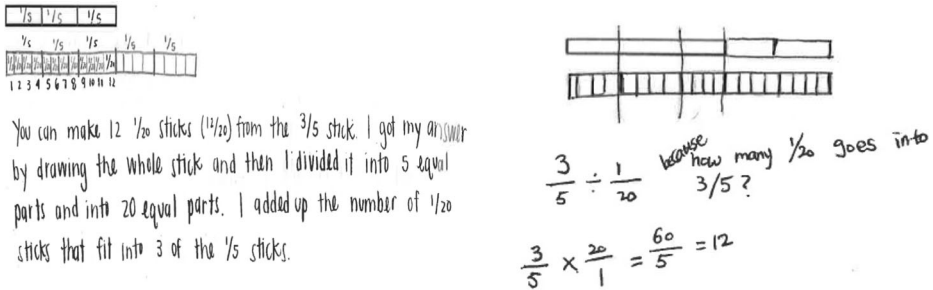 1/5 1/5 1/5
1/5 1/5 1/5 1/5 1/5
1 2 3 4 5 6 7 8 9 10 11 12
You can make 12 1/20 sticks (12/20) from the 3/5 stick. I got my answer
by drawing the whole stick and then I divided it into 5 equal
parts and into 20 equal parts. I added up the number of 1/20
sticks that fit into 3 of the 1/5 sticks.
3/5 ÷ 1/20 because how many 1/20 goes into
3/5?
3/5 × 20/1 = 60/5 = 12